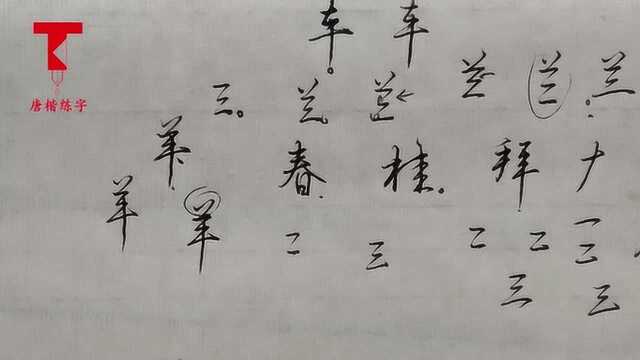 车 车
三 兰 兰 兰 兰 兰
羊 春 桂 拜 ナ
羊 羊 二 三 二 二 一 二
三 三
唐楷练字